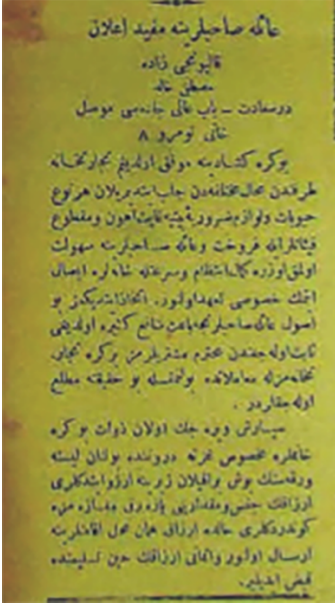 عائله صاحبلرينه مفيد اعلان
قاليونجى زاده
مصطفى خالد
درسعادت – باب عالى جاده‌سى موصل
خانى نومرو ٨
بو كره كشادينه موفق اولديغم تجارتخانه
طرفندن محال مختلفه‌دن جلب ايتديريلان هر نوع
حبوبات ولوازم ضروريهٔ بيتيه غايت اهون ومقطوع
فيئاتلرله فروخت وعائله صاحبلرينه سهولت
اولمق اوزره كمال انتظام وسرعتله خانه‌لره ايصال
ايتمك خصوصى تعهد اولنور. اتخاذ ايتديكمز بو
اصول عائله صاحبلرنجه باعث منافع كثيره اولديغى
ثابت اوله‌جغندن محترم مشتريلرمز بر كره تجار
تخانه‌مزله معاملاته بولنمسيله بو حقيقته مطلع
اوله‌جقلردر.
سپارش ويره جك اولان ذوات بو كره
خانلره مخصوص غزته دروننده بولنان ليسته
ورقه‌سنك بوش براقيلان يرينه آرزو ايتدكلرى
ارزاقك جنس ومقدارينى يازه‌رق مغازه‌مزه
كوندردكلرى حالده ارزاق همان محل اقامتلرينه
ارسال اولنور واثمانى ارزاقك حين تسليمنده
قبض ايديلير.